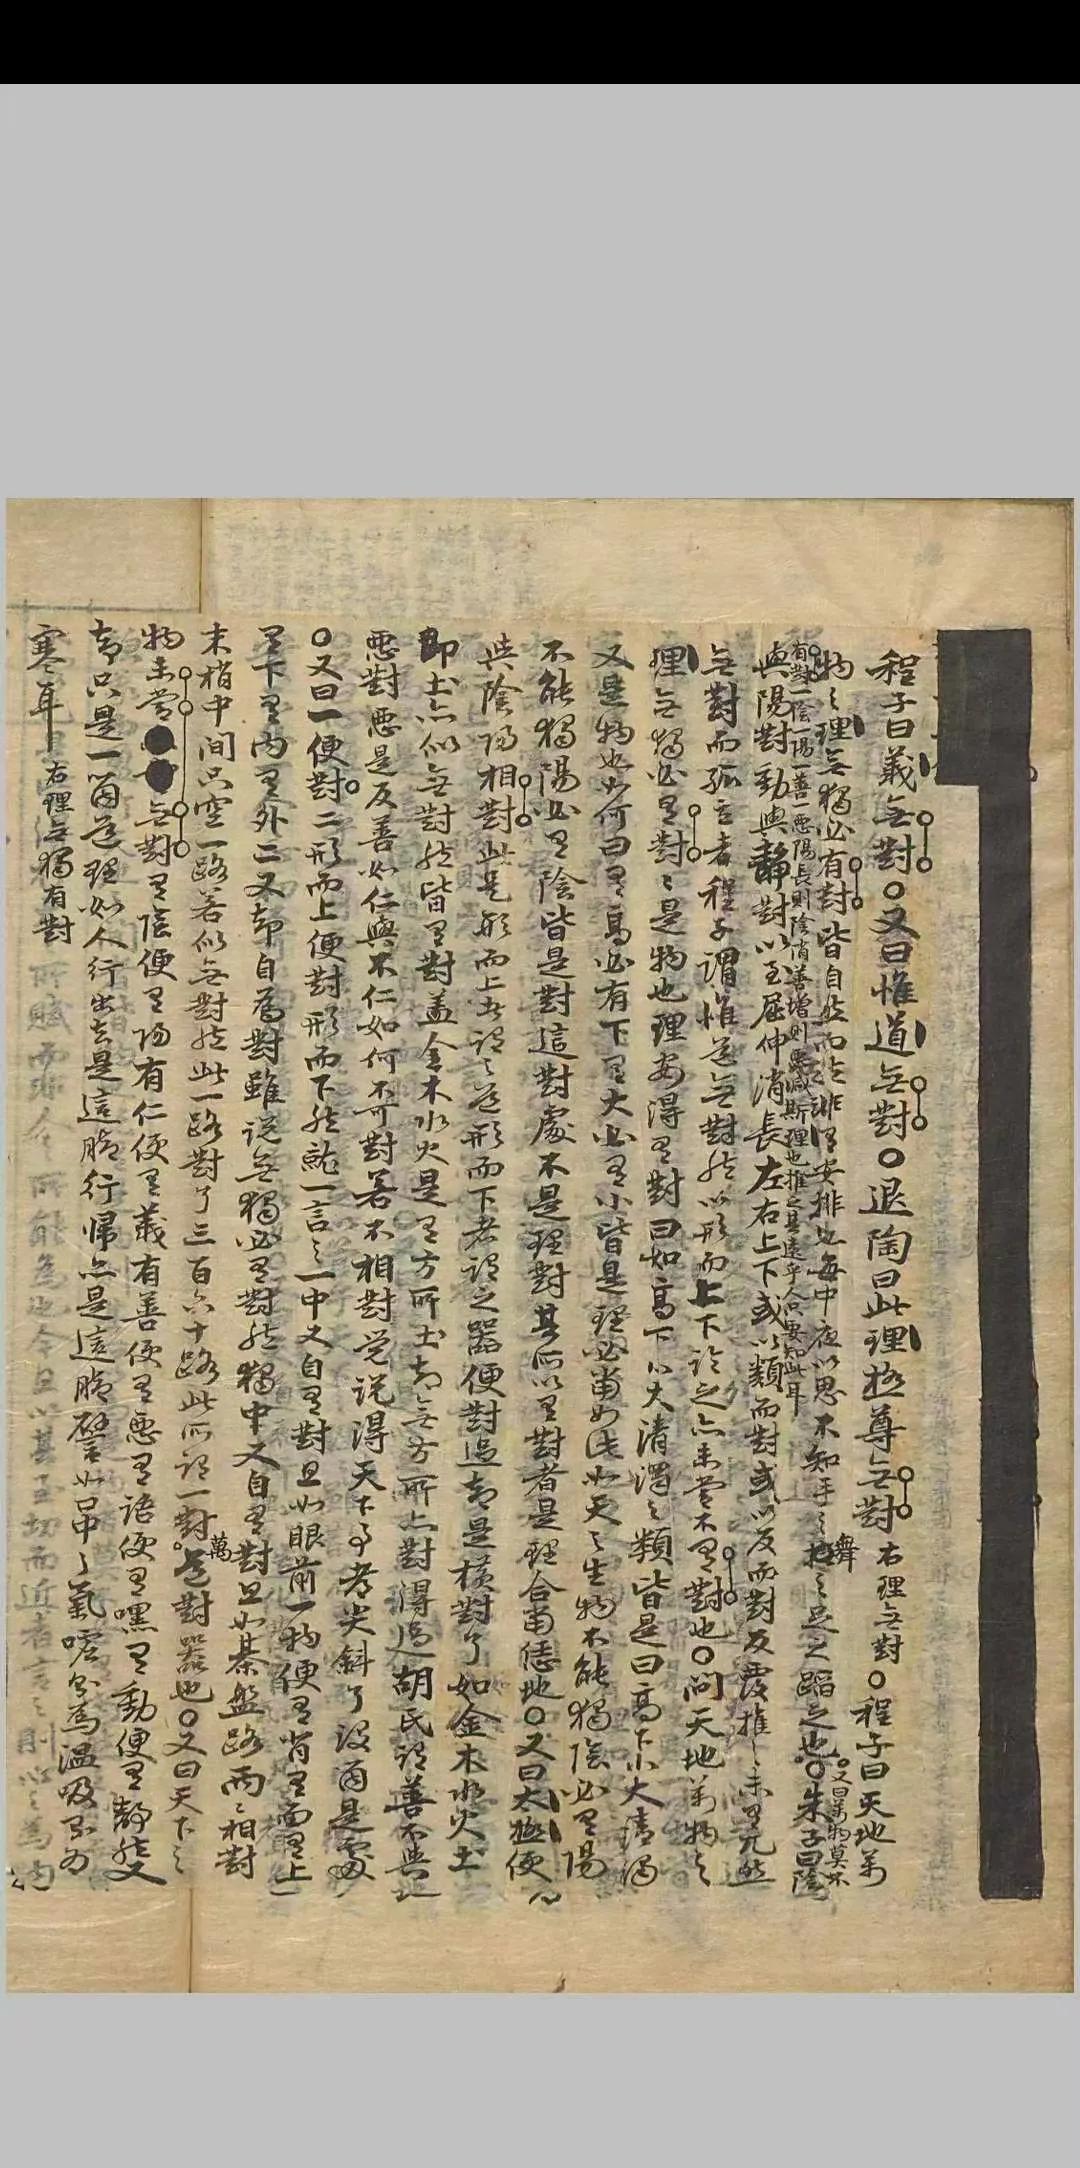 程子曰義無對○又曰惟道無對○退陶曰此理極尊無對右理無對○程子曰天地萬
物之理無獨必有對皆自然而然非有安排也每中夜以思不知手之舞之足之蹈之也○又曰萬物莫不
有對一陰一陽一善一惡陽長則陰消善增則惡減斯理也推之其遠乎人只要知此耳○朱子曰陰
與陽對動與靜對以至屈伸消長左右上下或以類而對或以反而對反覆推之未有兀然
無對而孤立者程子謂惟道無對然以形而上下論之亦未嘗不有對也○問天地萬物之
理無獨必有對對是物也理安得有對曰如高下小大清濁之類皆是曰高下小大清濁
又是物也如何曰有高必有下有大必有小皆是理必當如此如天之生物不能獨陰必有陽
不能獨陽必有陰皆是對這對處不是理對其所以有對者是理合當恁地○又曰太極便
與陰陽相對此是形而上者謂之道形而下者謂之器便對過却是橫對了如金木水火土
即土亦似無對然皆有對盖金木水火是有方所土却無方所亦對得過胡氏謂善不與
惡對惡是反善如仁與不仁如何不可對若不相對覺說得天下事都尖斜了沒箇是處
○又曰一便對二形而上便對形而下然就一言之一中又自有對且如眼前一物便有背有面有上
有下有內有外二又却自為對雖說無獨必有對然獨中又自有對且如棊盤路兩兩相對
末梢中間只空一路若似無對然此一路對了三百六十路此所謂一對萬道對器也○又曰天下之
物未嘗無對有陰便有陽有仁便有義有善便有惡有語便有嘿有動便有靜然又
却只是一箇道理如人行出去是這脚行帰亦是這脚譬如口中之氣噓則為溫吸則為
寒耳右理無獨有對